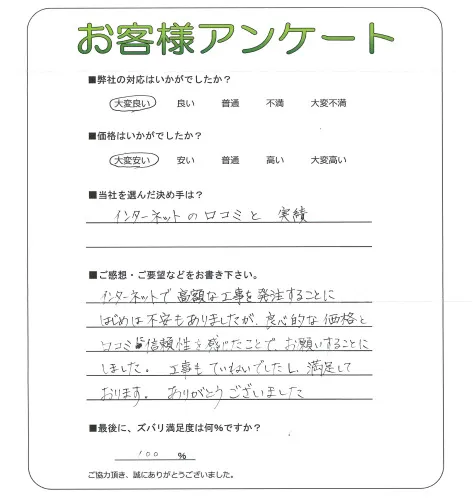 お客様アンケート
■弊社の対応はいかがでしたか？
大変良い 良い 普通 不満 大変不満
■価格はいかがでしたか？
大変安い 安い 普通 高い 大変高い
■当社を選んだ決め手は？
インターネットの口コミと 実績
■ご感想・ご要望などをお書き下さい。
インターネットで高額な工事を発注することに
はじめは不安もありましたが、良心的な価格と
口コミに信頼性を感じたことで、お願いすることに
しました。 工事もていねいでしたし、満足して
おります。 ありがとうございました
■最後に、ズバリ満足度は何％ですか？
100 ％
ご協力頂き、誠にありがとうございました。